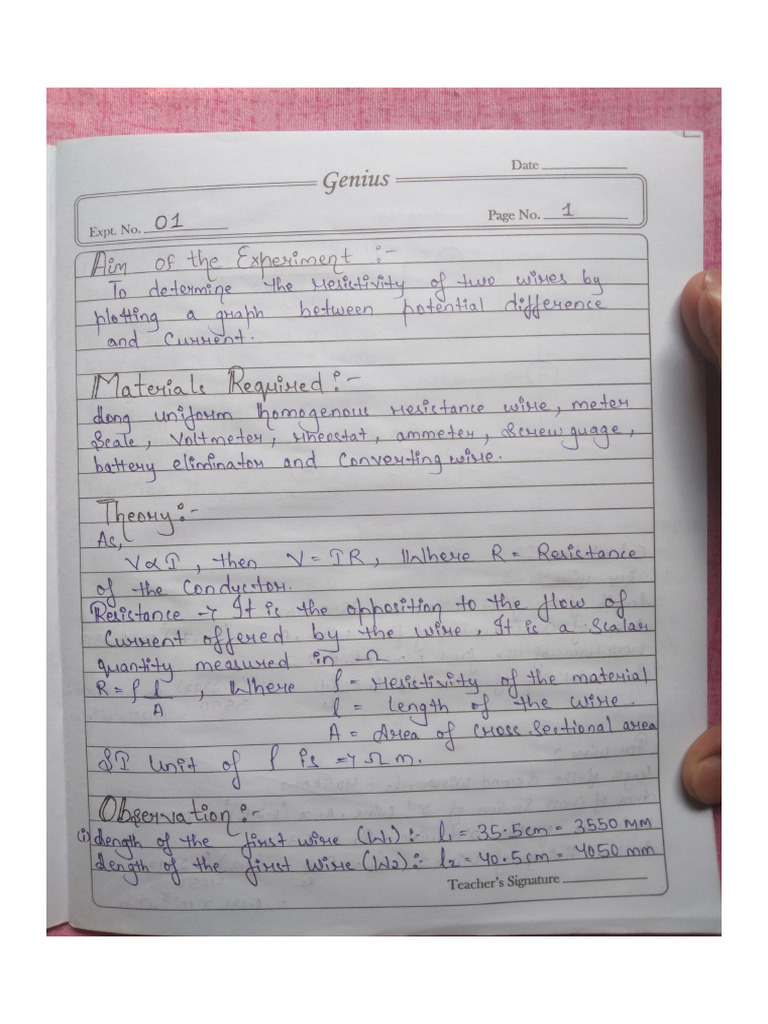 Genius
Date
Expt. No. 01
Page No. 1
Aim of the Experiment :-
To determine the resistivity of two wires by
plotting a graph between potential difference
and Current.
Materials Required :-
Long uniform homogenous resistance wire, meter
Scale, Voltmeter, rheostat, ammeter, Screw guage,
battery eliminator and Converting wire.
Theory :-
As,
V ∝ I, then V = IR, Where R = Resistance
of the Conductor.
Resistance → It is the opposition to the flow of
Current offered by the wire. It is a Scalar
quantity measured in Ω.
R = ρ l/A, Where ρ = resistivity of the material
l = length of the wire.
A = Area of cross-Sectional area
SI Unit of ρ is => Ω m.
Observation :-
(i) Length of the first wire (W1) :- l1 = 35.5cm = 3550 MM
Length of the first Wire (W2) :- l2 = 40.5cm = 4050 mm
Teacher's Signature